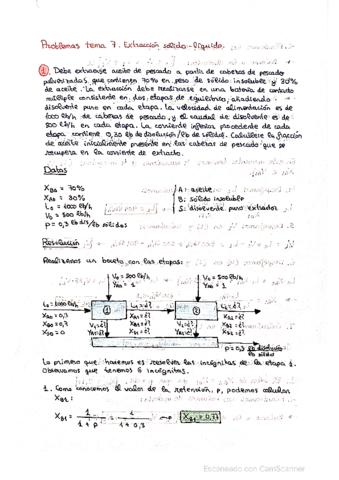 Problemas tema 7. Extracción sólido-líquido.
① Debe extraerse aceite de pescado a partir de cabezas de pescado
pulverizadas, que contienen 70% en peso de sólido insoluble y 30%
de aceite. La extracción debe realizarse en una batería de contacto
múltiple consistente en dos etapas de equilibrio, añadiendo
disolvente puro en cada etapa. La velocidad de alimentación es de
1000 lb/h de cabezas de pescado, y el caudal de disolvente es de
500 lb/h en cada etapa. La corriente inferior procedente de cada
etapa contiene 0,30 lb de disolución/lb de sólidos. Calcúlese la fracción
de aceite inicialmente presente en las cabezas de pescado que se
recupera en la corriente de extracto.
Datos
XB0 = 70%
XA0 = 30%
L0 = 1000 lb/h
V0 = 500 lb/h
p = 0,3 lb dis/lb sólidos
A: aceite
B: sólido insoluble
S: disolvente puro extractor
Resolución
Realizamos un boceto con las etapas:
V0 = 500 lb/h
V0 = 500 lb/h
L0 = 1000 lb/h
①
L1 = ¿?
②
L2 = ¿?
XA0 = 0,3
XB0 = 0,7
XS0 = 0
V1 = ¿?
XA1 = ¿?
XB1 = ¿?
XS1 = ¿?
V2 = ¿?
XA2 = ¿?
XB2 = ¿?
XS2 = ¿?
p = 0,3 lb disolución
lb sólido
Lo primero que haremos es resolver las incógnitas de la etapa 1.
Observamos que tenemos 6 incógnitas.
1. Como conocemos el valor de la retención, p, podemos calcular
XB1:
XB1 = 1/(1 + p) = 1/(1 + 0,3) → XB1 = 0,77
Escaneado con CamScanner